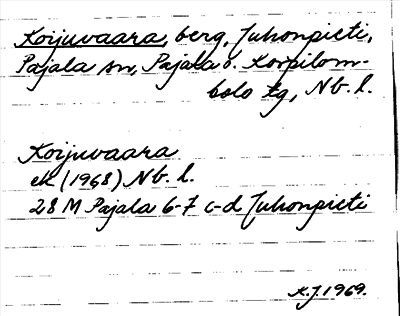 Koijuvaara, berg, Juhonpieti,
Pajala sn, Pajala o. Korpilom-
bolo tg, Nb. l.
Koijuvaara
ek (1968) Nb. l.
28 M Pajala 6-7 c-d Juhonpieti
K.J. 1969.